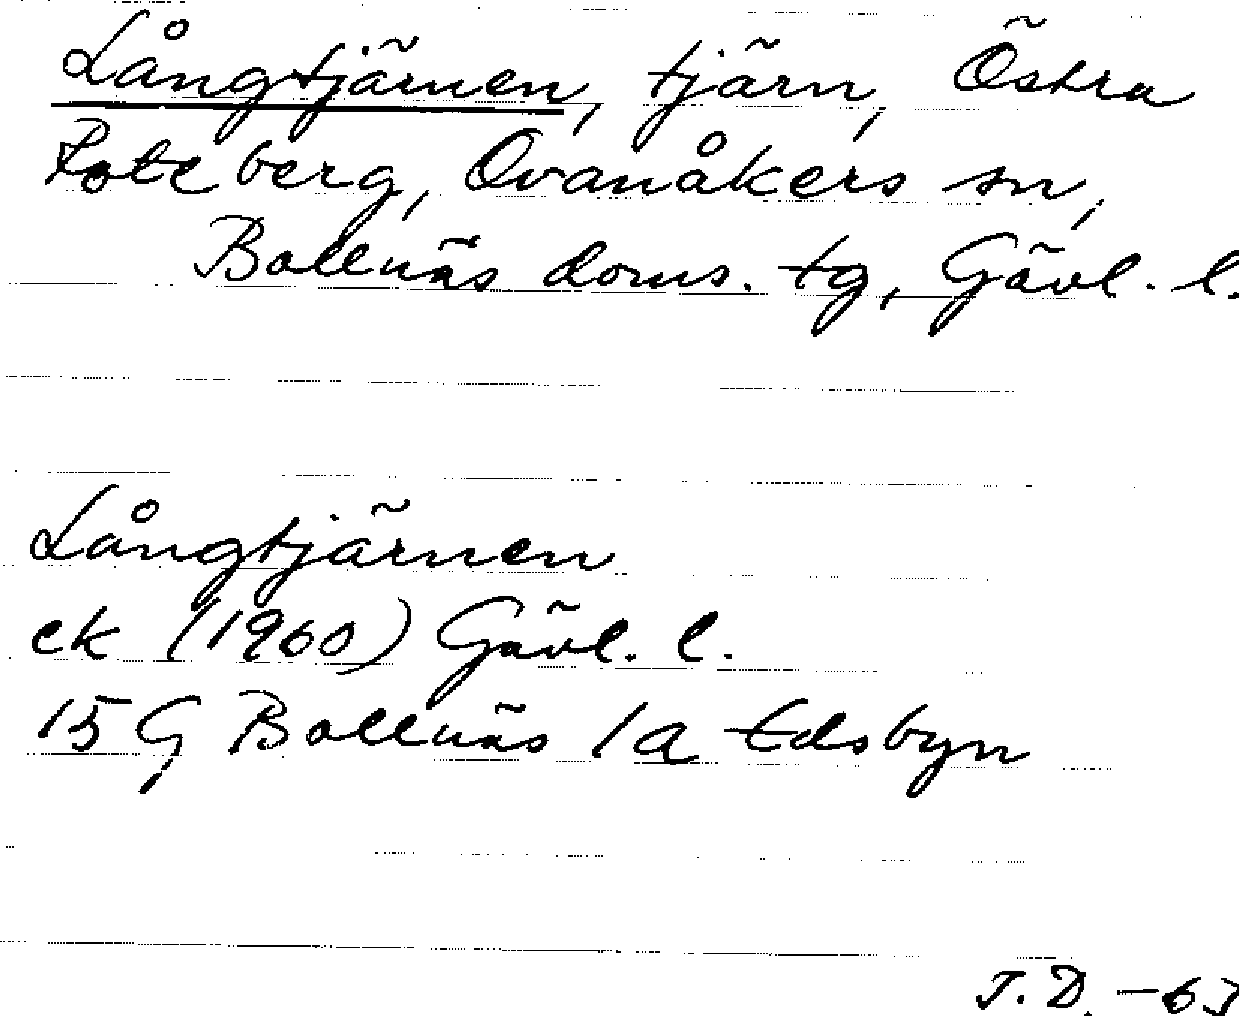 Långtjärnen, tjärn, Östra
Roteberg, Ovanåkers sn,
Bollnäs doms. tg, Gävl. l.
Långtjärnen
ek (1960) Gävl. l.
15 G Bollnäs 1a Edsbyn
J. D. -63